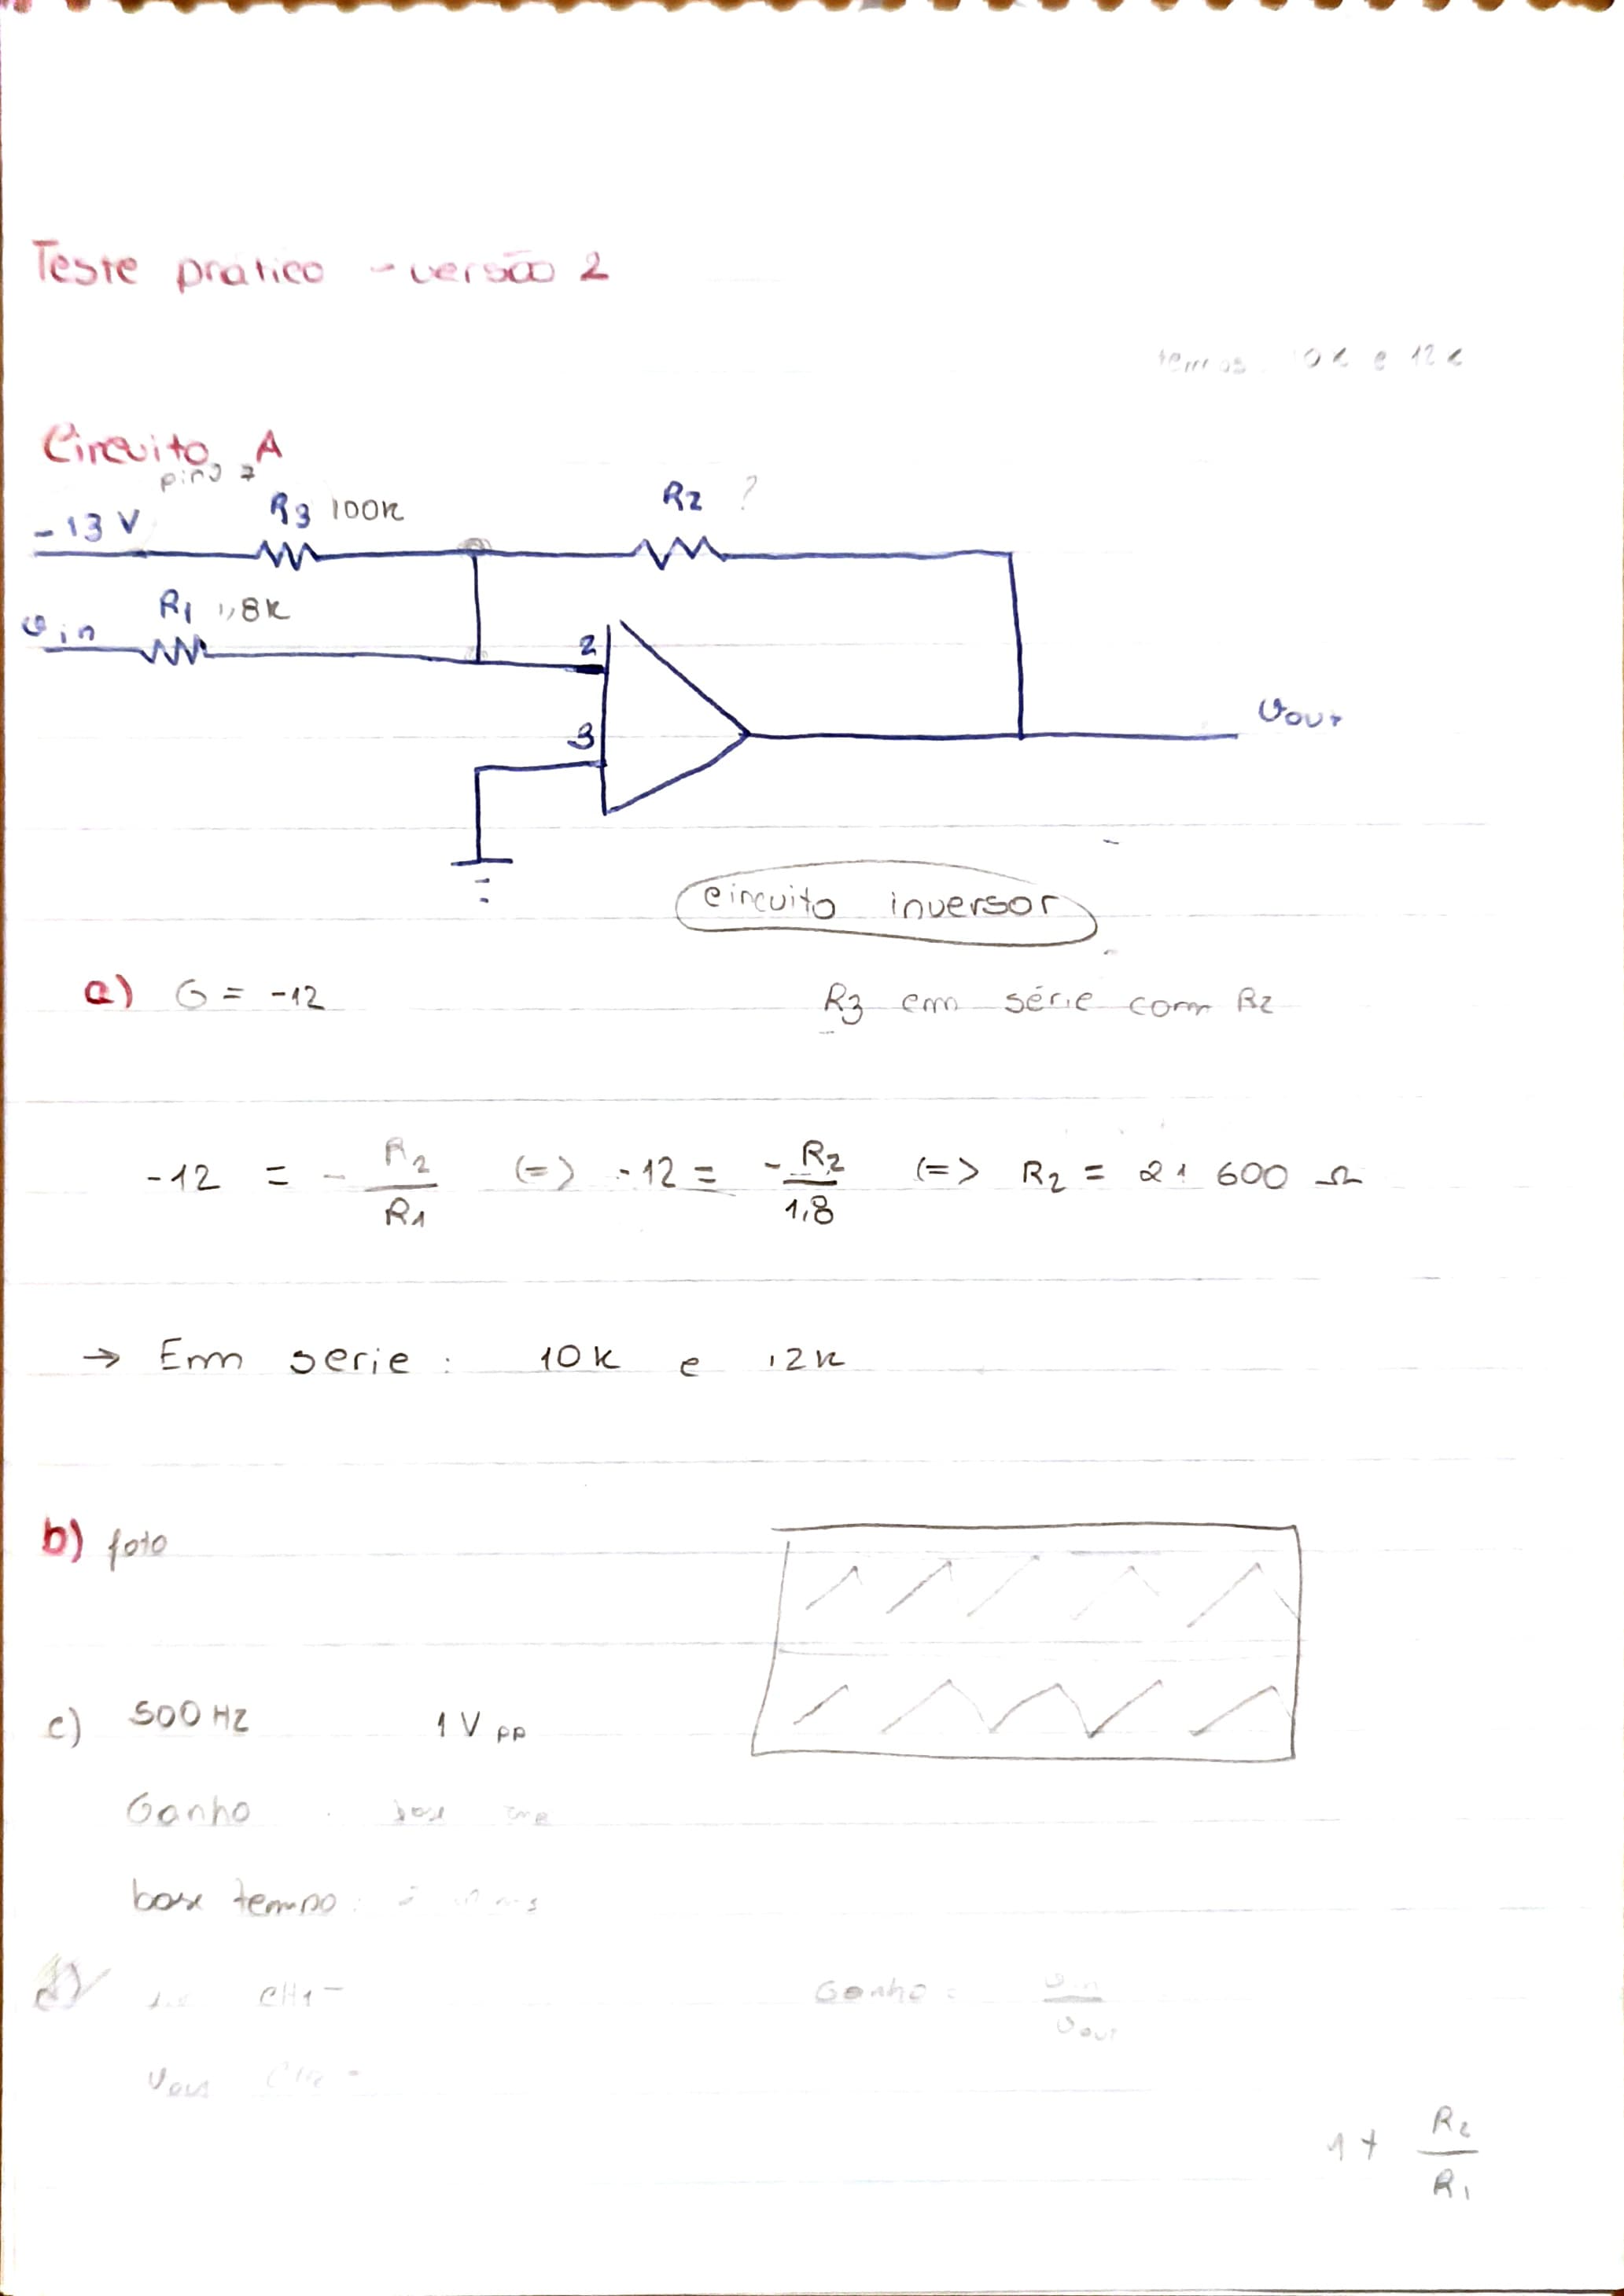 Teste prático - versão 2
temos 10k e 12k
Circuito A
pino 7
-13V R3 100k R2 ?
vin R1 1,8k
2
3
vout
circuito inversor
a) G = -12 R3 em série com R2
-12 = - R2/R1 (=) -12 = -R2/1,8 (=> R2 = 21 600 Ω
→ Em serie : 10k e 12k
b) foto
c) 500 Hz 1 Vpp
Ganho
base tempo:
CH1 - Ganho = vin/vout
vout
1 + R2/R1